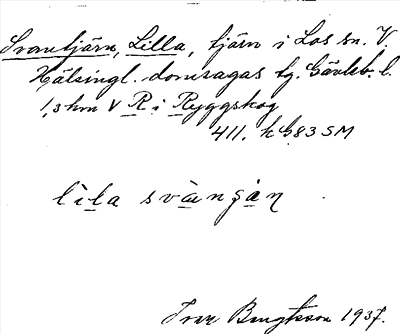 Svantjärn, Lilla, tjärn i Los sn. V.
Hälsingl. domsagas tg. Gävleb. l.
1,3 km V R i Ryggskog
411. h G83 SM
lila svängån
Ivar Bengtsson 1937.